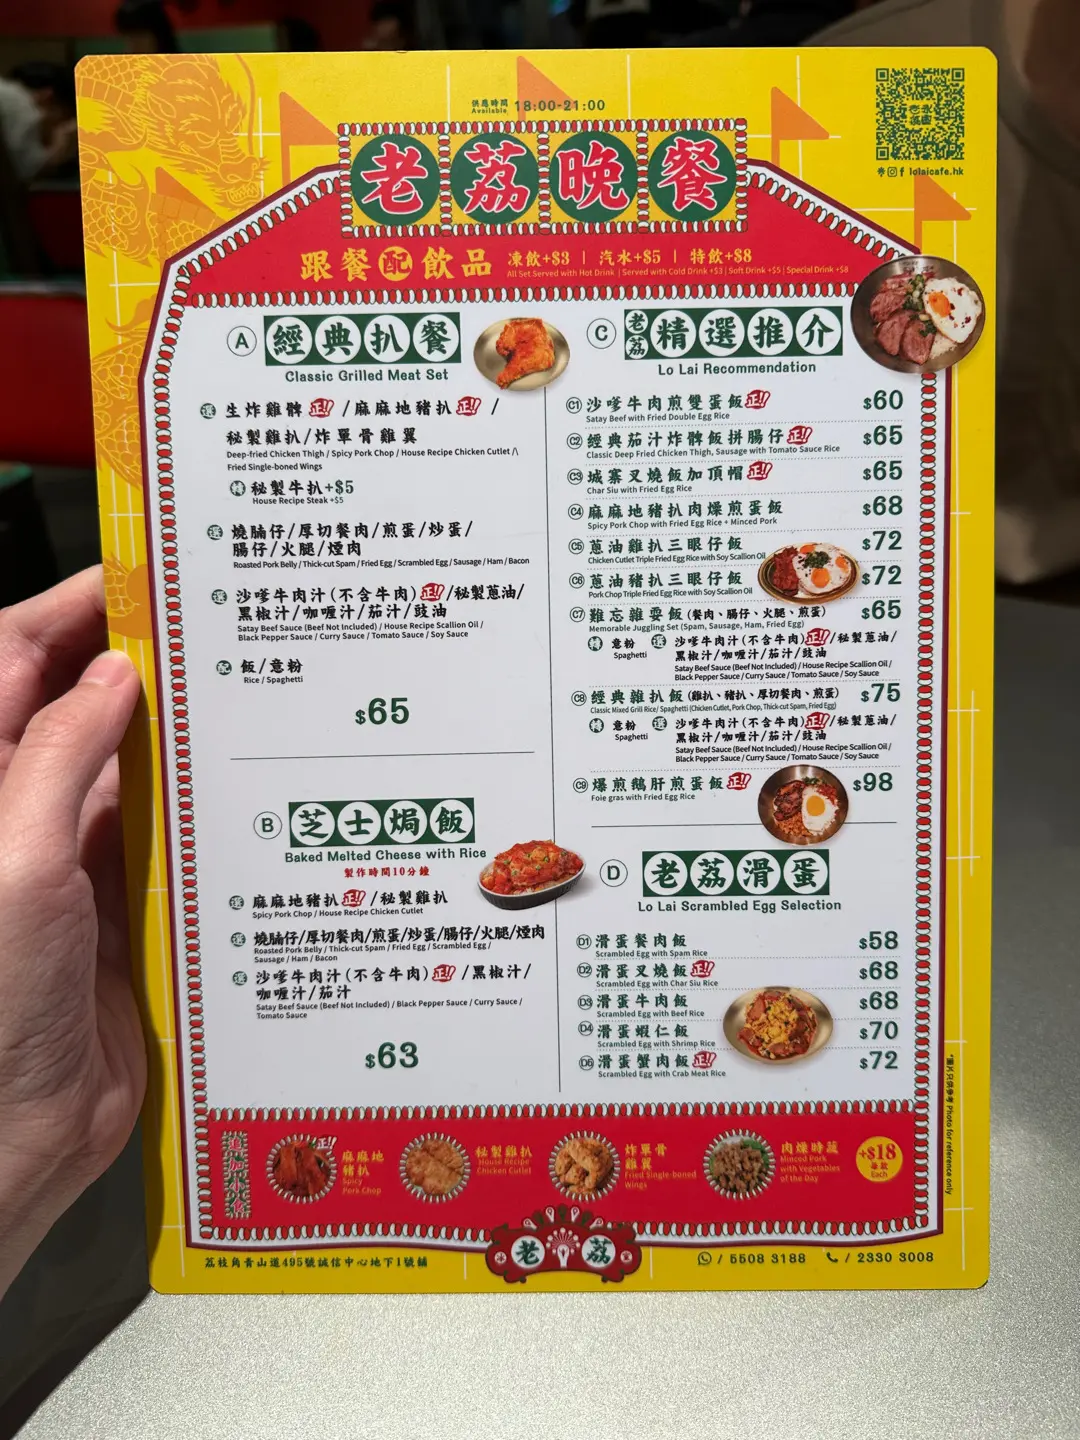 供應時間 18:00-21:00
Available
老荔晚餐
lolaicafe.hk
跟餐配飲品 凍飲+$3 | 汽水+$5 | 特飲+$8
All Set Served with Hot Drink | Served with Cold Drink +$3 | Soft Drink +$5 | Special Drink +$8
A 經典扒餐
Classic Grilled Meat Set
選 生炸雞髀 正!! / 麻麻地豬扒 正!! /
秘製雞扒/炸單骨雞翼
Deep-fried Chicken Thigh / Spicy Pork Chop / House Recipe Chicken Cutlet /\
Fried Single-boned Wings
轉 秘製牛扒+$5
House Recipe Steak +$5
選 燒腩仔/厚切餐肉/煎蛋/炒蛋/
腸仔/火腿/煙肉
Roasted Pork Belly / Thick-cut Spam / Fried Egg / Scrambled Egg / Sausage / Ham / Bacon
選 沙嗲牛肉汁(不含牛肉) 正!! /秘製蔥油/
黑椒汁/咖喱汁/茄汁/豉油
Satay Beef Sauce (Beef Not Included) / House Recipe Scallion Oil /
Black Pepper Sauce / Curry Sauce / Tomato Sauce / Soy Sauce
配 飯/意粉
Rice / Spaghetti
$65
B 芝士焗飯
Baked Melted Cheese with Rice
製作時間10分鐘
選 麻麻地豬扒 正!! /秘製雞扒
Spicy Pork Chop / House Recipe Chicken Cutlet
選 燒腩仔/厚切餐肉/煎蛋/炒蛋/腸仔/火腿/煙肉
Roasted Pork Belly / Thick-cut Spam / Fried Egg / Scrambled Egg /
Sausage / Ham / Bacon
選 沙嗲牛肉汁(不含牛肉) 正!! /黑椒汁/
咖喱汁/茄汁
Satay Beef Sauce (Beef Not Included) / Black Pepper Sauce / Curry Sauce /
Tomato Sauce
$63
C 老荔精選推介
Lo Lai Recommendation
C1 沙嗲牛肉煎雙蛋飯 正!! $60
Satay Beef with Fried Double Egg Rice
C2 經典茄汁炸髀飯拼腸仔 正!! $65
Classic Deep Fried Chicken Thigh, Sausage with Tomato Sauce Rice
C3 城寨叉燒飯加頂帽 正!! $65
Char Siu with Fried Egg Rice
C4 麻麻地豬扒肉燥煎蛋飯 $68
Spicy Pork Chop with Fried Egg Rice + Minced Pork
C5 蔥油雞扒三眼仔飯 $72
Chicken Cutlet Triple Fried Egg Rice with Soy Scallion Oil
C6 蔥油豬扒三眼仔飯 $72
Pork Chop Triple Fried Egg Rice with Soy Scallion Oil
C7 難忘雜耍飯(餐肉、腸仔、火腿、煎蛋) $65
Memorable Juggling Set (Spam, Sausage, Ham, Fried Egg)
轉 意粉 選 沙嗲牛肉汁(不含牛肉) 正!! /秘製蔥油/
Spaghetti 黑椒汁/咖喱汁/茄汁/豉油
Satay Beef Sauce (Beef Not Included) / House Recipe Scallion Oil /
Black Pepper Sauce / Curry Sauce / Tomato Sauce / Soy Sauce
C8 經典雜扒飯(雞扒、豬扒、厚切餐肉、煎蛋) $75
Classic Mixed Grill Rice/ Spaghetti (Chicken Cutlet, Pork Chop, Thick-cut Spam, Fried Egg)
轉 意粉 選 沙嗲牛肉汁(不含牛肉) 正!! /秘製蔥油/
Spaghetti 黑椒汁/咖喱汁/茄汁/豉油
Satay Beef Sauce (Beef Not Included) / House Recipe Scallion Oil /
Black Pepper Sauce / Curry Sauce / Tomato Sauce / Soy Sauce
C9 爆煎鵝肝煎蛋飯 正!! $98
Foie gras with Fried Egg Rice
D 老荔滑蛋
Lo Lai Scrambled Egg Selection
D1 滑蛋餐肉飯 $58
Scrambled Egg with Spam Rice
D2 滑蛋叉燒飯 正!! $68
Scrambled Egg with Char Siu Rice
D3 滑蛋牛肉飯 $68
Scrambled Egg with Beef Rice
D4 滑蛋蝦仁飯 $70
Scrambled Egg with Shrimp Rice
D5 滑蛋蟹肉飯 正!! $72
Scrambled Egg with Crab Meat Rice
*圖片只供參考 Photo for reference only
追加小食
正!! 麻麻地
豬扒
Spicy
Pork Chop
秘製雞扒
House Recipe
Chicken Cutlet
炸單骨
雞翼
Fried Single-boned
Wings
肉燥時蔬
Minced Pork
with Vegetables
of the Day
+$18
每款
Each
老荔
荔枝角青山道495號誠信中心地下1號舖
/ 5508 3188 / 2330 3008